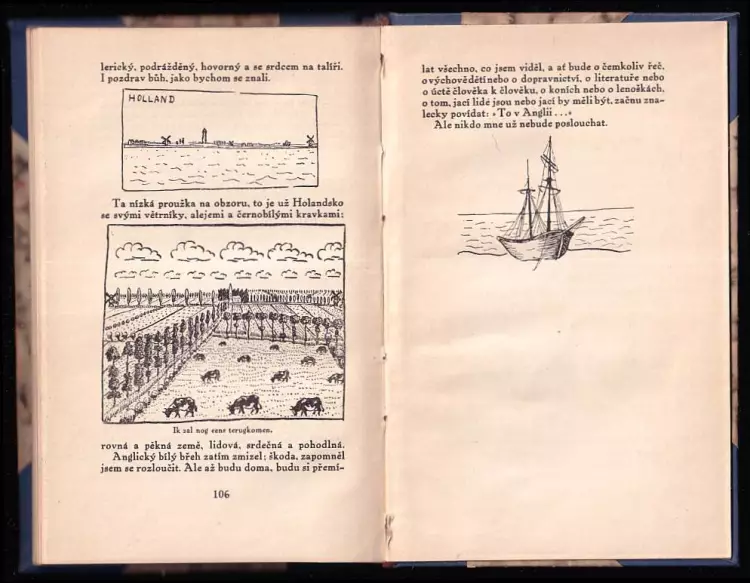 lerický, podrážděný, hovorný a se srdcem na talíři.
I pozdrav bůh, jako bychom se znali.
HOLLAND
Ta nízká proužka na obzoru, to je už Holandsko
se svými větrníky, alejemi a černobílými kravkami:
Ik zal nog eens terugkomen.
rovná a pěkná země, lidová, srdečná a pohodlná.
Anglický bílý břeh zatím zmizel; škoda, zapomněl
jsem se rozloučit. Ale až budu doma, budu si přemí-
106
lat všechno, co jsem viděl, a ať bude o čemkoliv řeč,
o výchově dětí nebo o dopravnictví, o literatuře nebo
o úctě člověka k člověku, o koních nebo o lenoškách,
o tom, jací lidé jsou nebo jací by měli být, začnu zna-
lecky povídat: »To v Anglii . . .«
Ale nikdo mne už nebude poslouchat.